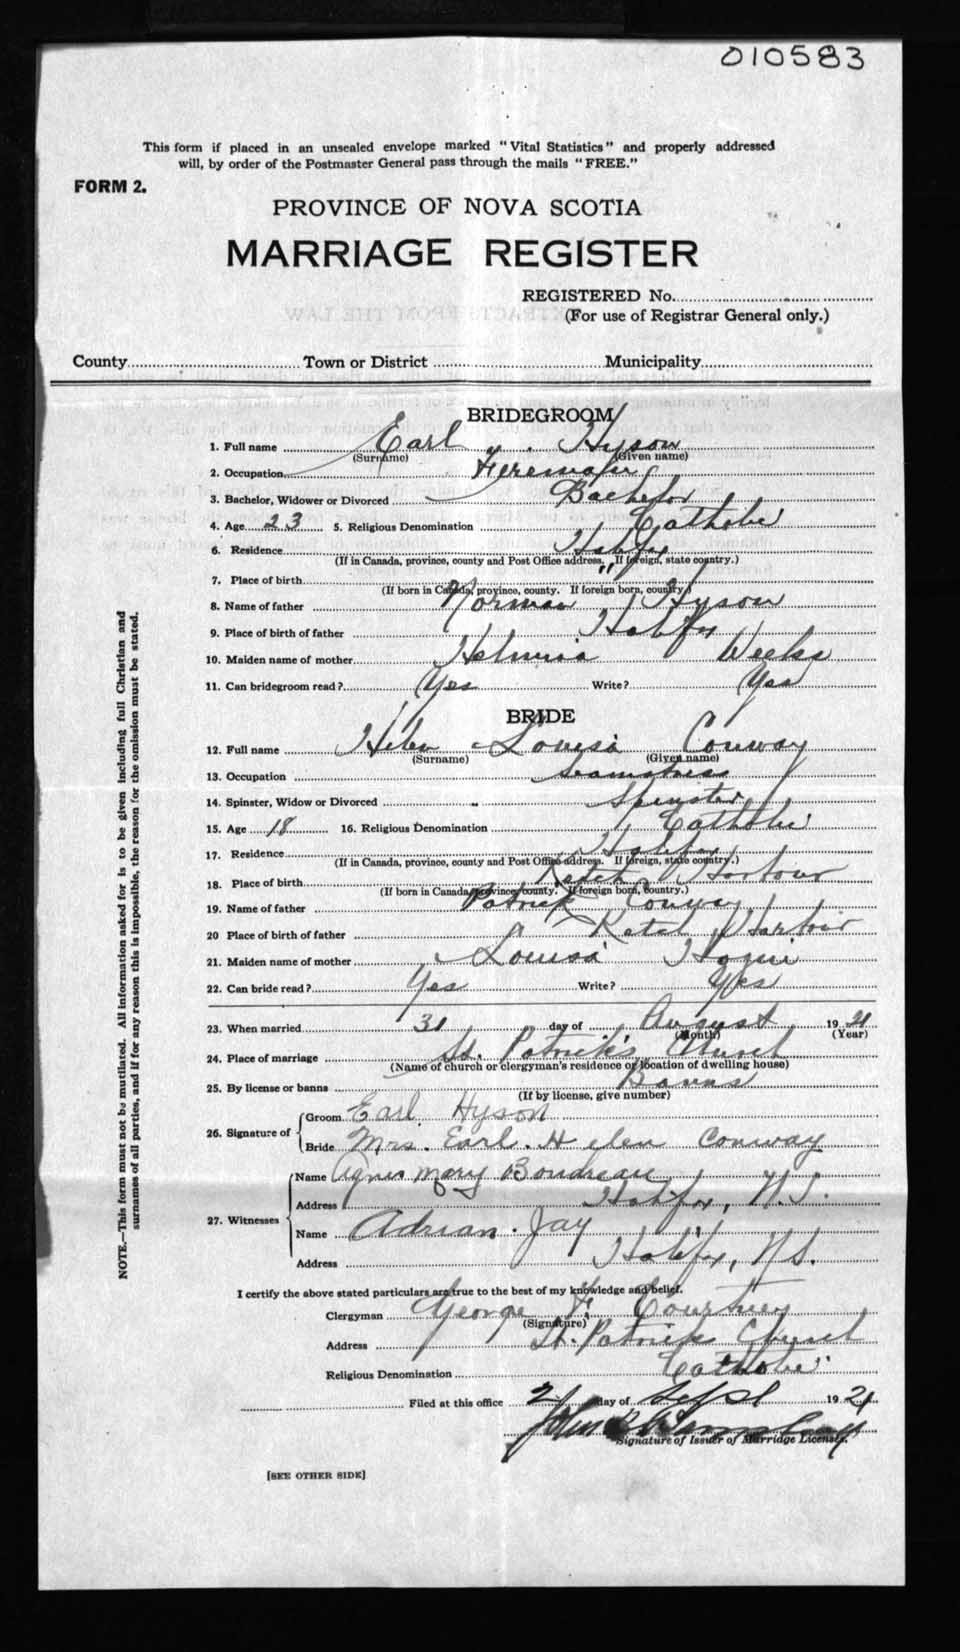 010583
This form if placed in an unsealed envelope marked "Vital Statistics" and properly addressed
will, by order of the Postmaster General pass through the mails "FREE."
FORM 2.
PROVINCE OF NOVA SCOTIA
MARRIAGE REGISTER
REGISTERED No.
(For use of Registrar General only.)
County Town or District Municipality
BRIDEGROOM
1. Full name Earl Hyson
(Surname) (Given name)
2. Occupation
3. Bachelor, Widower or Divorced Bachelor
4. Age 23 5. Religious Denomination Catholic
6. Residence Halifax
(If in Canada, province, county and Post Office address. If foreign, state country.)
7. Place of birth "
(If born in Canada, province, county. If foreign born, country.)
8. Name of father Norman Hyson
9. Place of birth of father Halifax
10. Maiden name of mother Weeks
11. Can bridegroom read? Yes Write? Yes
BRIDE
12. Full name Helen Louisa Conway
(Surname) (Given name)
13. Occupation Seamstress
14. Spinster, Widow or Divorced Spinster
15. Age 18 16. Religious Denomination Catholic
17. Residence Halifax
(If in Canada, province, county and Post Office address. If foreign, state country.)
18. Place of birth Ketch Harbour
(If born in Canada, province, county. If foreign born, country.)
19. Name of father Patrick Conway
20 Place of birth of father Ketch Harbour
21. Maiden name of mother Louisa
22. Can bride read? Yes Write? Yes
23. When married 31 day of August 1921
(Month) (Year)
24. Place of marriage St. Patrick's Church
(Name of church or clergyman's residence or location of dwelling house)
25. By license or banns Banns
(If by license, give number)
26. Signature of Groom Earl Hyson
Bride Mrs. Earl. Helen Conway
27. Witnesses Name Agnes Mary Boudreau
Address Halifax, N.S.
Name Adrian Jay
Address Halifax, N.S.
I certify the above stated particulars are true to the best of my knowledge and belief.
Clergyman George F. Courtney
(Signature)
Address St. Patricks Church
Religious Denomination Catholic
Filed at this office 2 day of Sept 1921
Signature of Issuer of Marriage Licenses.
[SEE OTHER SIDE]
NOTE.—This form must not be mutilated. All information asked for is to be given including full Christian and
surnames of all parties, and if for any reason this is impossible, the reason for the omission must be stated.